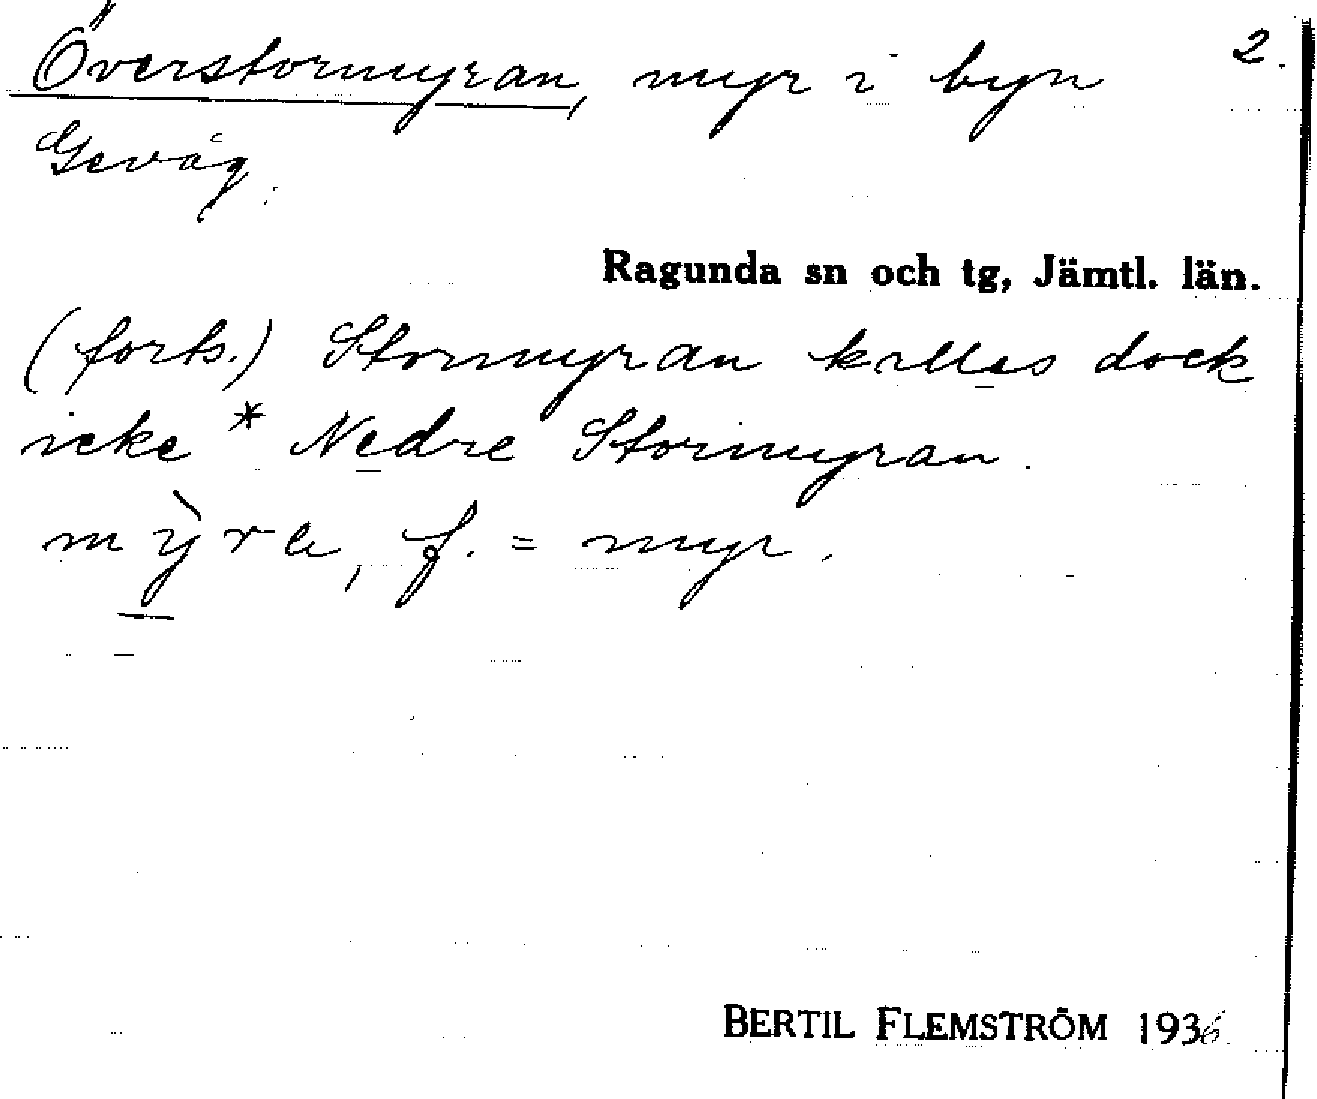 Överstormyran, myr i byn 2.
Gevåg.
Ragunda sn och tg, Jämtl. län.
(forts.) Stormyran kallas dock
icke * Nedre Stormyran.
mỳra, f. = myr.
BERTIL FLEMSTRÖM 1936